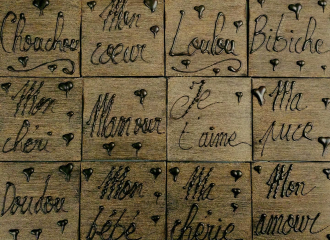 Chouchou
Mon
coeur
Loulou
Bibiche
Mon
chéri
Mamour
Je
t'aime
Ma
puce
Doudou
Mon
bébé
Ma
chérie
Mon
amour